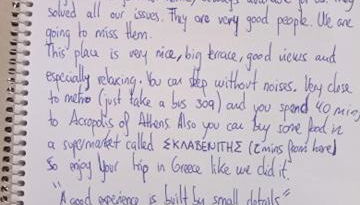 always available for us. They
solved all our issues. They are very good people. We are
going to miss them.
This place is very nice, big terrace, good views and
especially relaxing. You can sleep without noises. Very close
to metro (just take a bus 309) and you spend 40 mins
to Acropolis of Athens. Also you can buy some food in
a supermarket called ΣΚΛΑΒΕΝΙΤΗΣ (2 mins from here)
So enjoy your trip in Greece like we did it.
"A good experience is built by small details"